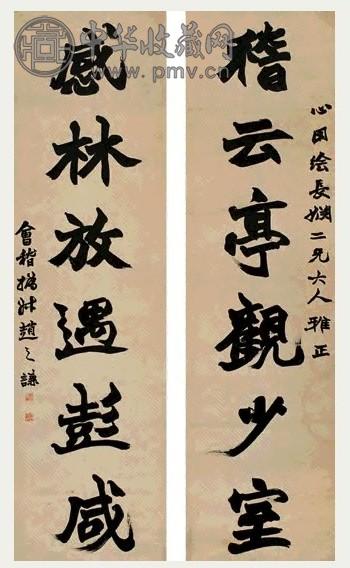 中华收藏网
www.pmv.cn
二兄大人雅正
稽云亭觀少室
感林放遇彭咸
會稽撝叔趙之謙